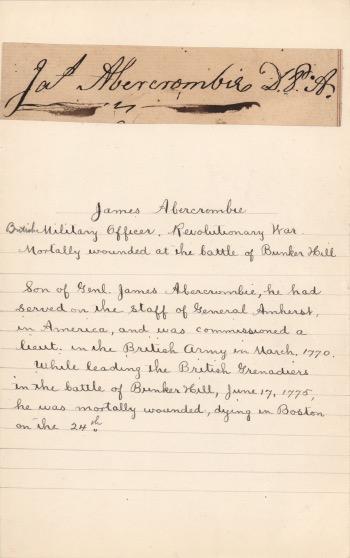 Jas Abercrombie D.P.A.
James Abercrombie
British Military Officer. Revolutionary War
Mortally wounded at the battle of Bunker Hill
Son of Genl. James Abercrombie, he had
served on the staff of General Amherst,
in America, and was commissioned a
lieut. in the British Army in March, 1770.
While leading the British Grenadiers
in the battle of Bunker Hill, June 17, 1775,
he was mortally wounded, dying in Boston
on the 24th.